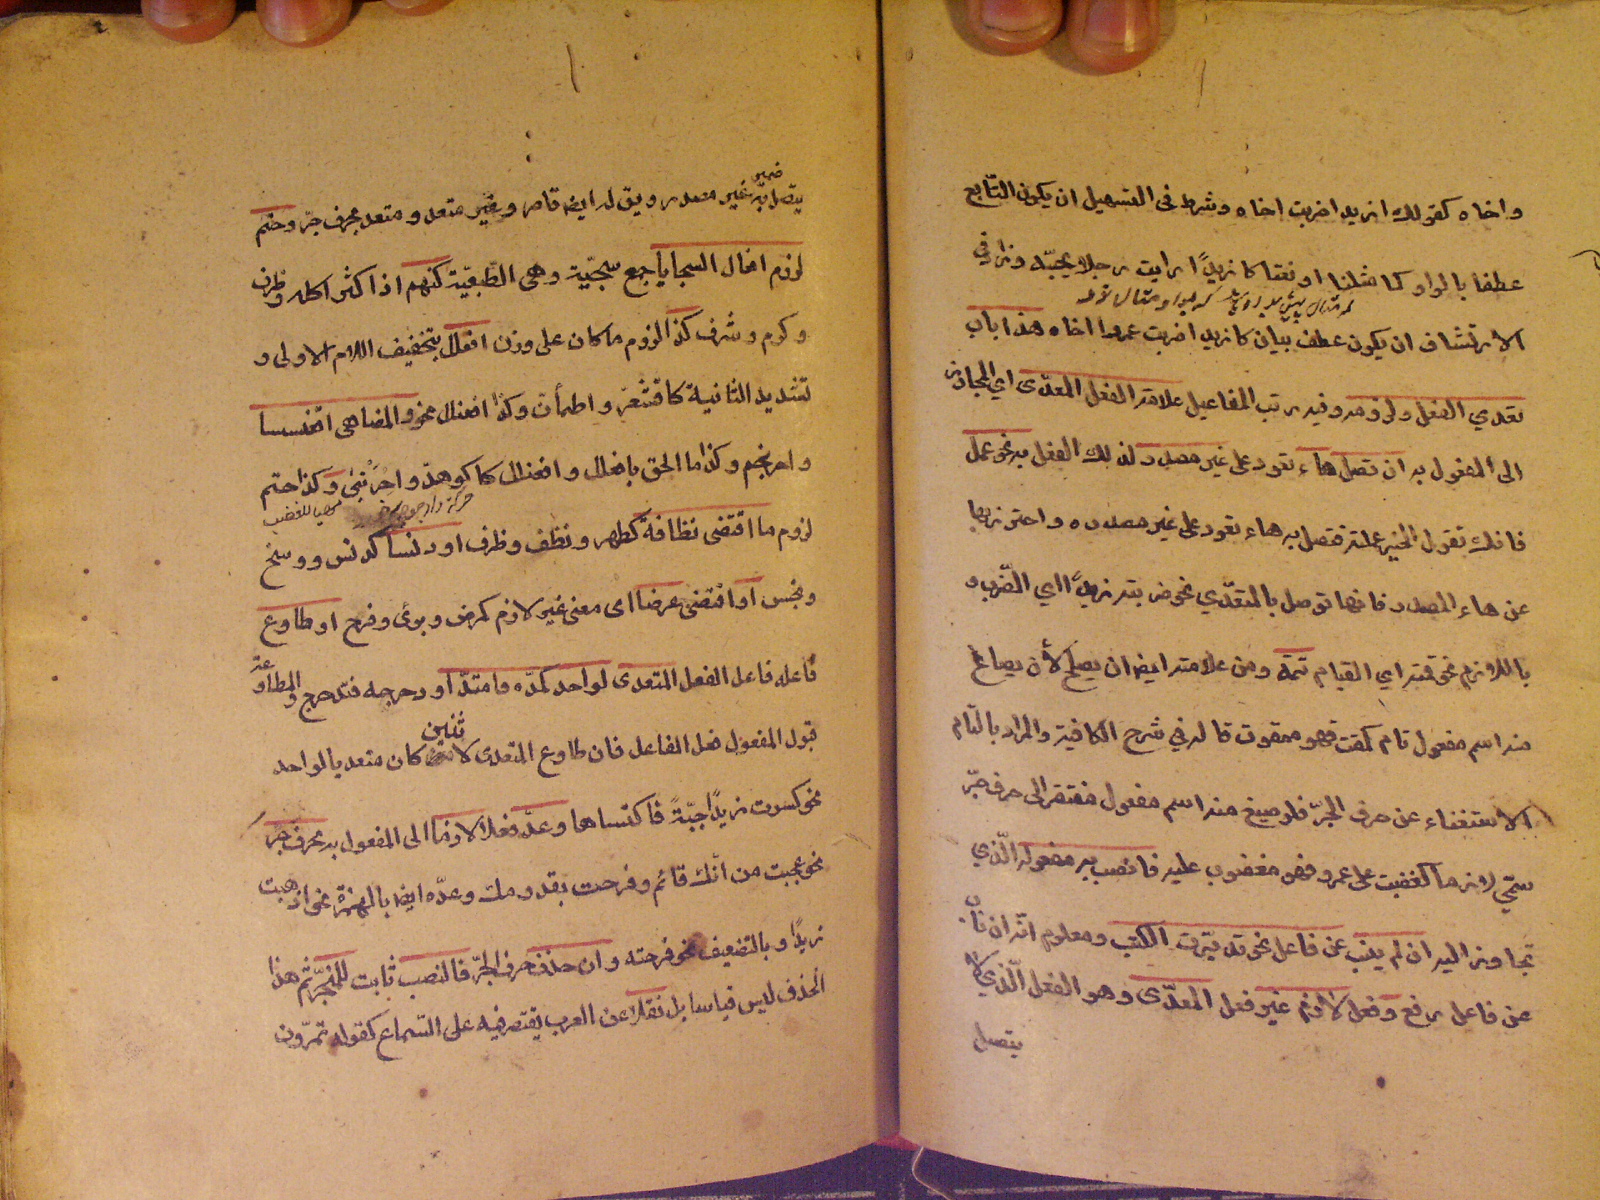 واخاه كقولك ازيد اضربت اخاه وشرط فى التسهيل ان يكون التّابع
عطفا بالواو كما مثلنا او نعتا كازيدًا رايت رجلا يحبّه وزاد في
الارتشاف ان يكون عطف بيان كازيد اضربت عمروا اخاه هذا باب
تعدي الفعل ولزومه وفيه رتب المفاعيل علامة الفعل المعدّى اي المجاوز
الى المفعول به ان تصل هاء تعود على غير مصدر ولذلك الفعل به نحو عمل
فانك تقول الخير عملته فتصل به هاء تعود على غير مصدره واحترز بها
عن هاء المصدر فانها توصل بالمتعدّي نحو ضربته زيدًا اي الضّرب و
باللازم نحو قمته اي القيام تتمّة ومن علامته ايضا ان يصلح لأن يصاغ
منه اسم مفعول تام كمقت فهو ممقوت قاله في شرح الكافية والمراد بالتّام
الاستغناء عن حرف الجرّ فلو صيغ منه اسم مفعول مفتقر الى حرف جرّ
سمّي لازما كغضبت على عمرو فهو مغضوب عليه فانصب به مفعوله الّذي
تجاوز اليه ان لم ينب عن فاعل نحو تدبّرت الكتب ومعلوم انّه ان ناب
عن فاعل رفع وفعل لازم غير فعل المعدّى وهو الفعل الّذي لا
يتصل
يتصل به ضمير غير مصدر ويق له ايضا قاصر وغير متعد ومتعد بحرف جرّ وحتم
لزوم افعال السجايا جمع سجيّة وهى الطّبيعة كنهم اذا كثر اكله وظرف
وكرم وشرف كذا لزوم ما كان على وزن افعللّ بتخفيف اللام الاولى و
تشديد الثانية كاقشعرّ واطمأنّ وكذا افعنلل نحو والمضاهى اقعنسسا
واحرنجم وكذا ما الحق بافعلل وافعنلل كاكوهدّ واحرنبى وكذا حتم
لزوم ما اقتضى نظافة كطهر ونظف وظرف او دنسا كدنس ووسخ
ونجس او اقتضى عرضا اى معنى غير لازم كمرض وبرئ وفرح او طاوع
فاعله فاعل الفعل المتعدى لواحد كمدّه فامتدّ او دحرجه فتدحرج والمطاوعة
قبول المفعول فعل الفاعل فان طاوع المتعدى لاثنين كان متعديا لواحد
نحو كسوت زيدًا جبّةً فاكتساها وعدّ فعلا لازما الى المفعول به بحرف جرّ
نحو عجبت من أنّك قائم وفرحت بقدومك وعدّه ايضا بالهمزة نحو اذهبت
زيدًا وبالتضعيف نحو فرحته وان حذف حرف الجرّ فالنصب ثابت للمنجرّ ثم هذا
الحذف ليس قياسا بل نقلا عن العرب يقتصر فيه على السّماع كقوله تمرّون